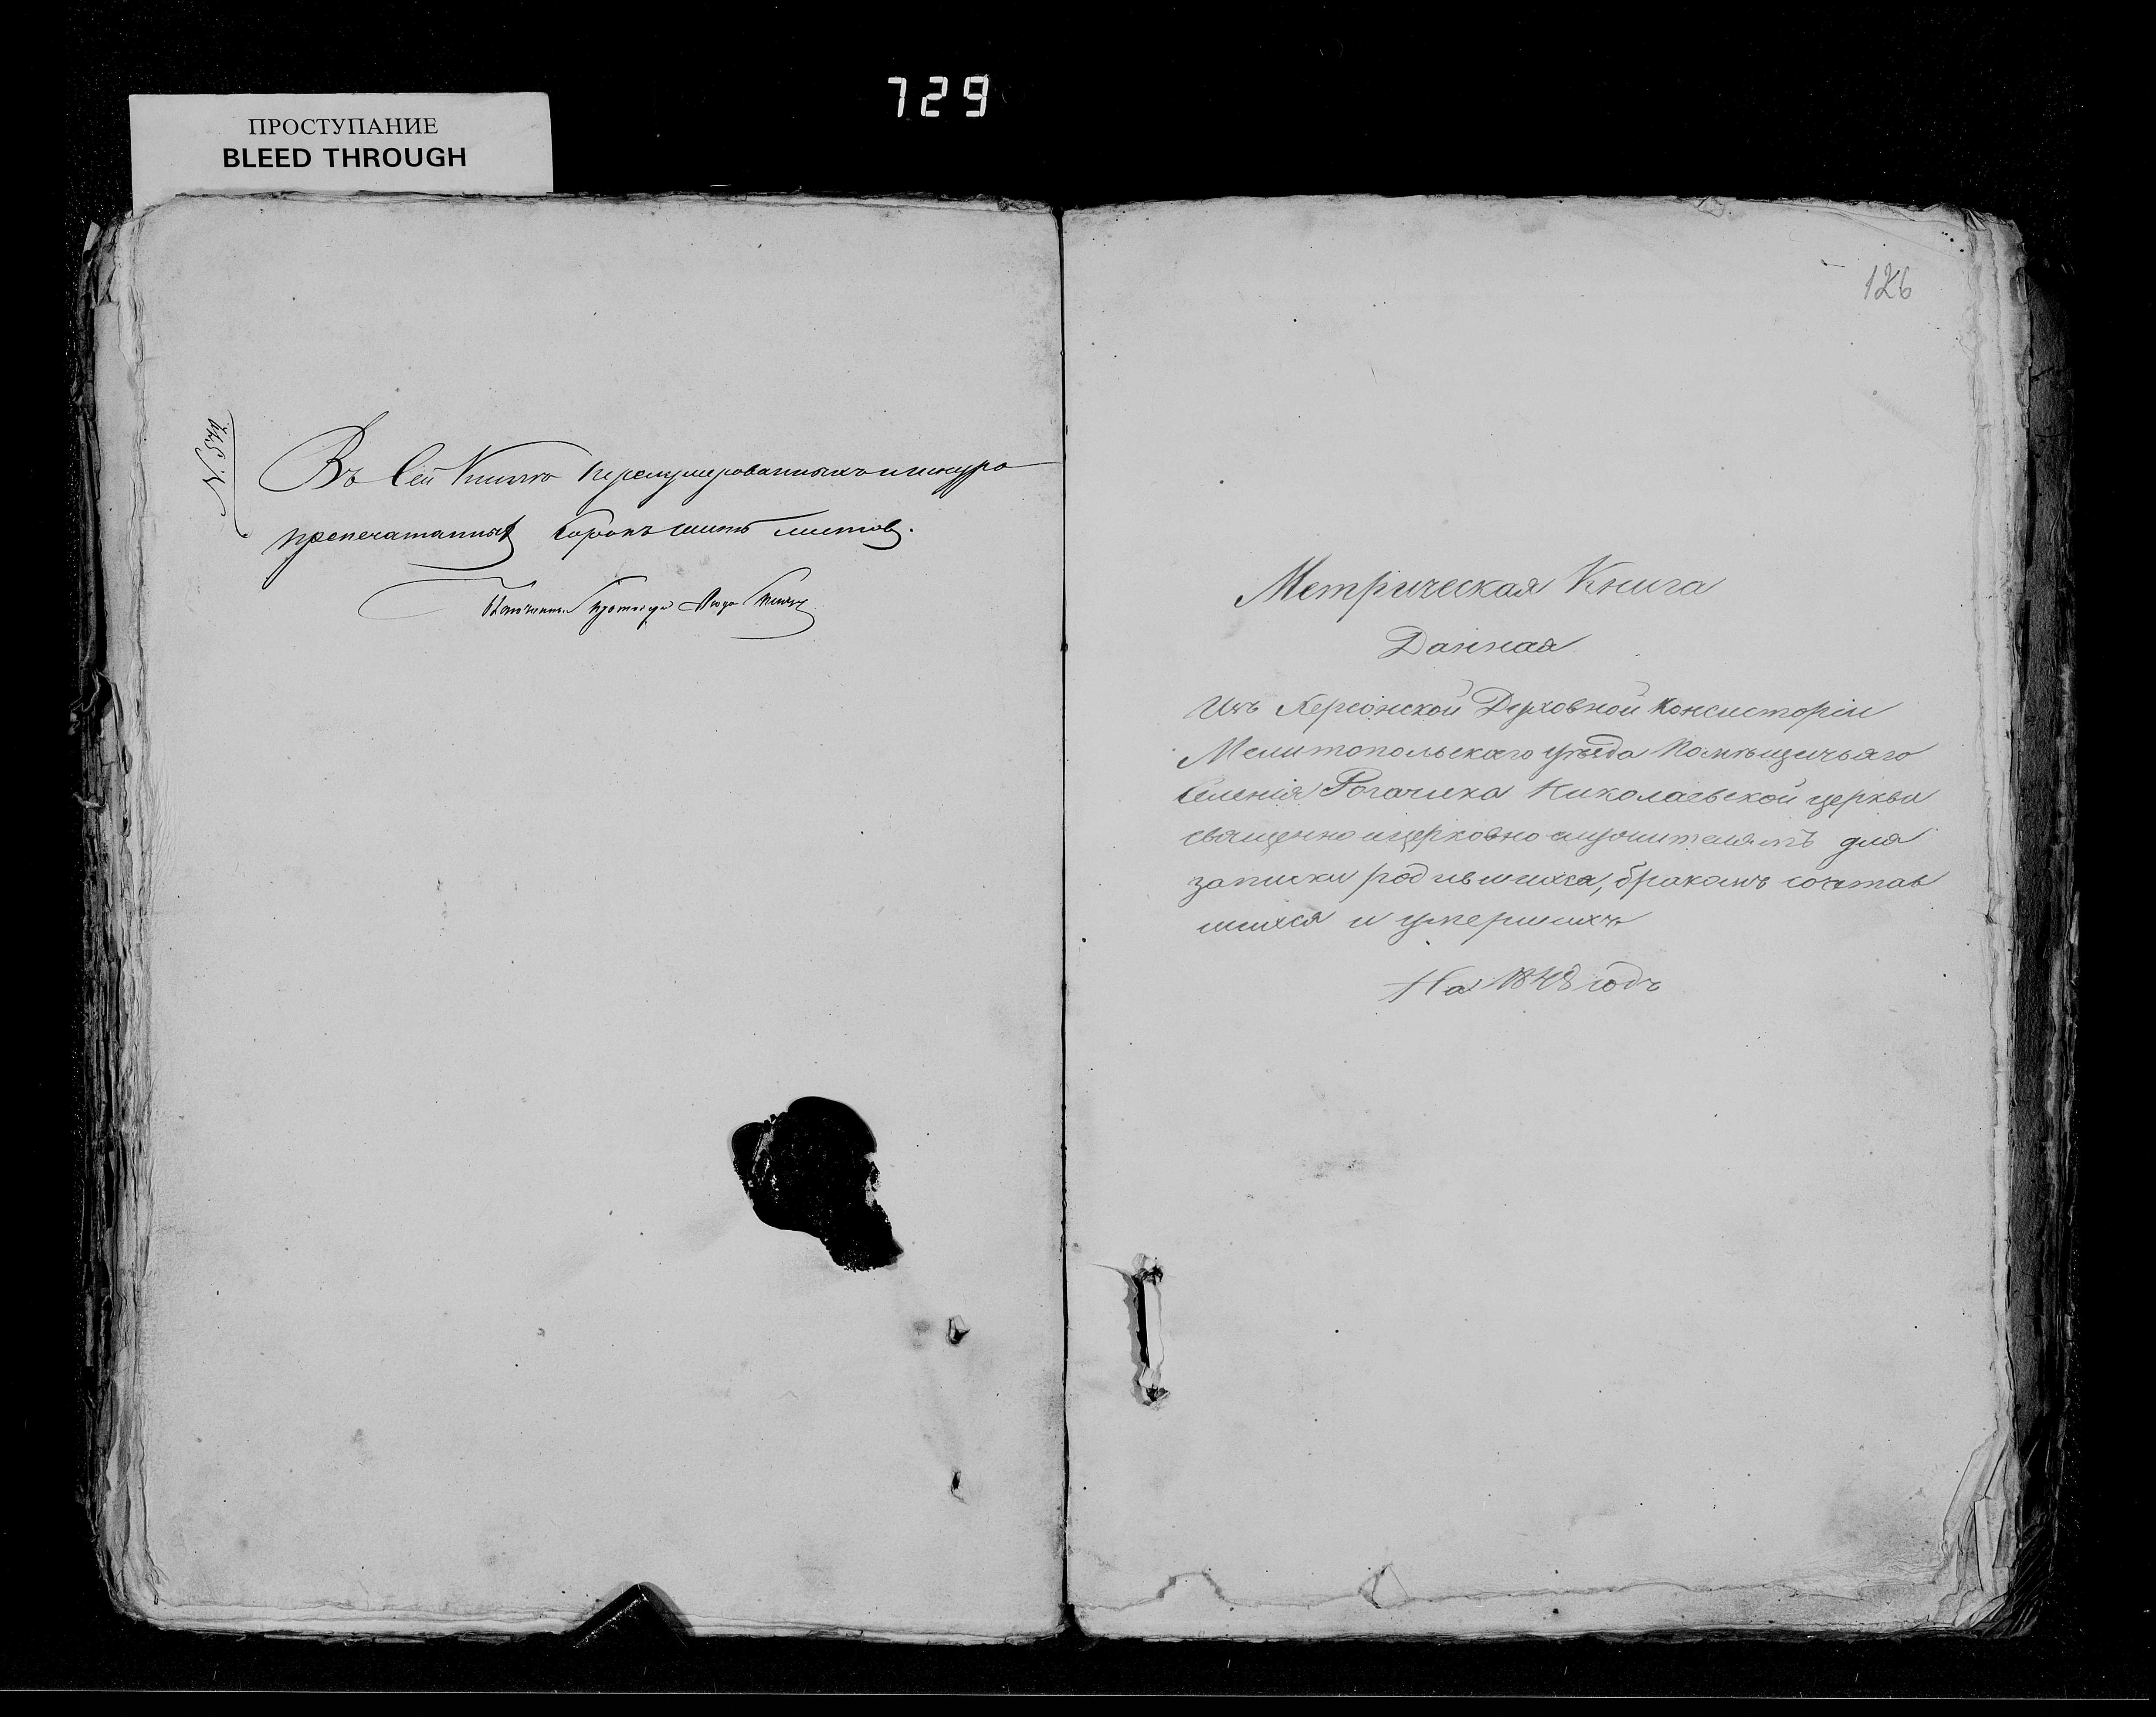 729
ПРОСТУПАНИЕ
BLEED THROUGH
126
Въ Сей Книгѣ перенумерованныхъ и шнуро
пропечатанныхъ сорокъ листов.
Протоіерей
Метрическая Книга
Данная
Изъ Херсонской Духовной Консисторіи
Мелитопольскаго уѣзда Помѣщичьяго
селенія Рогачика Николаевской церкви
священно и церковно служителямъ для
записки родившихся, бракомъ сочетав
шихся и умершихъ
На 1848 годъ